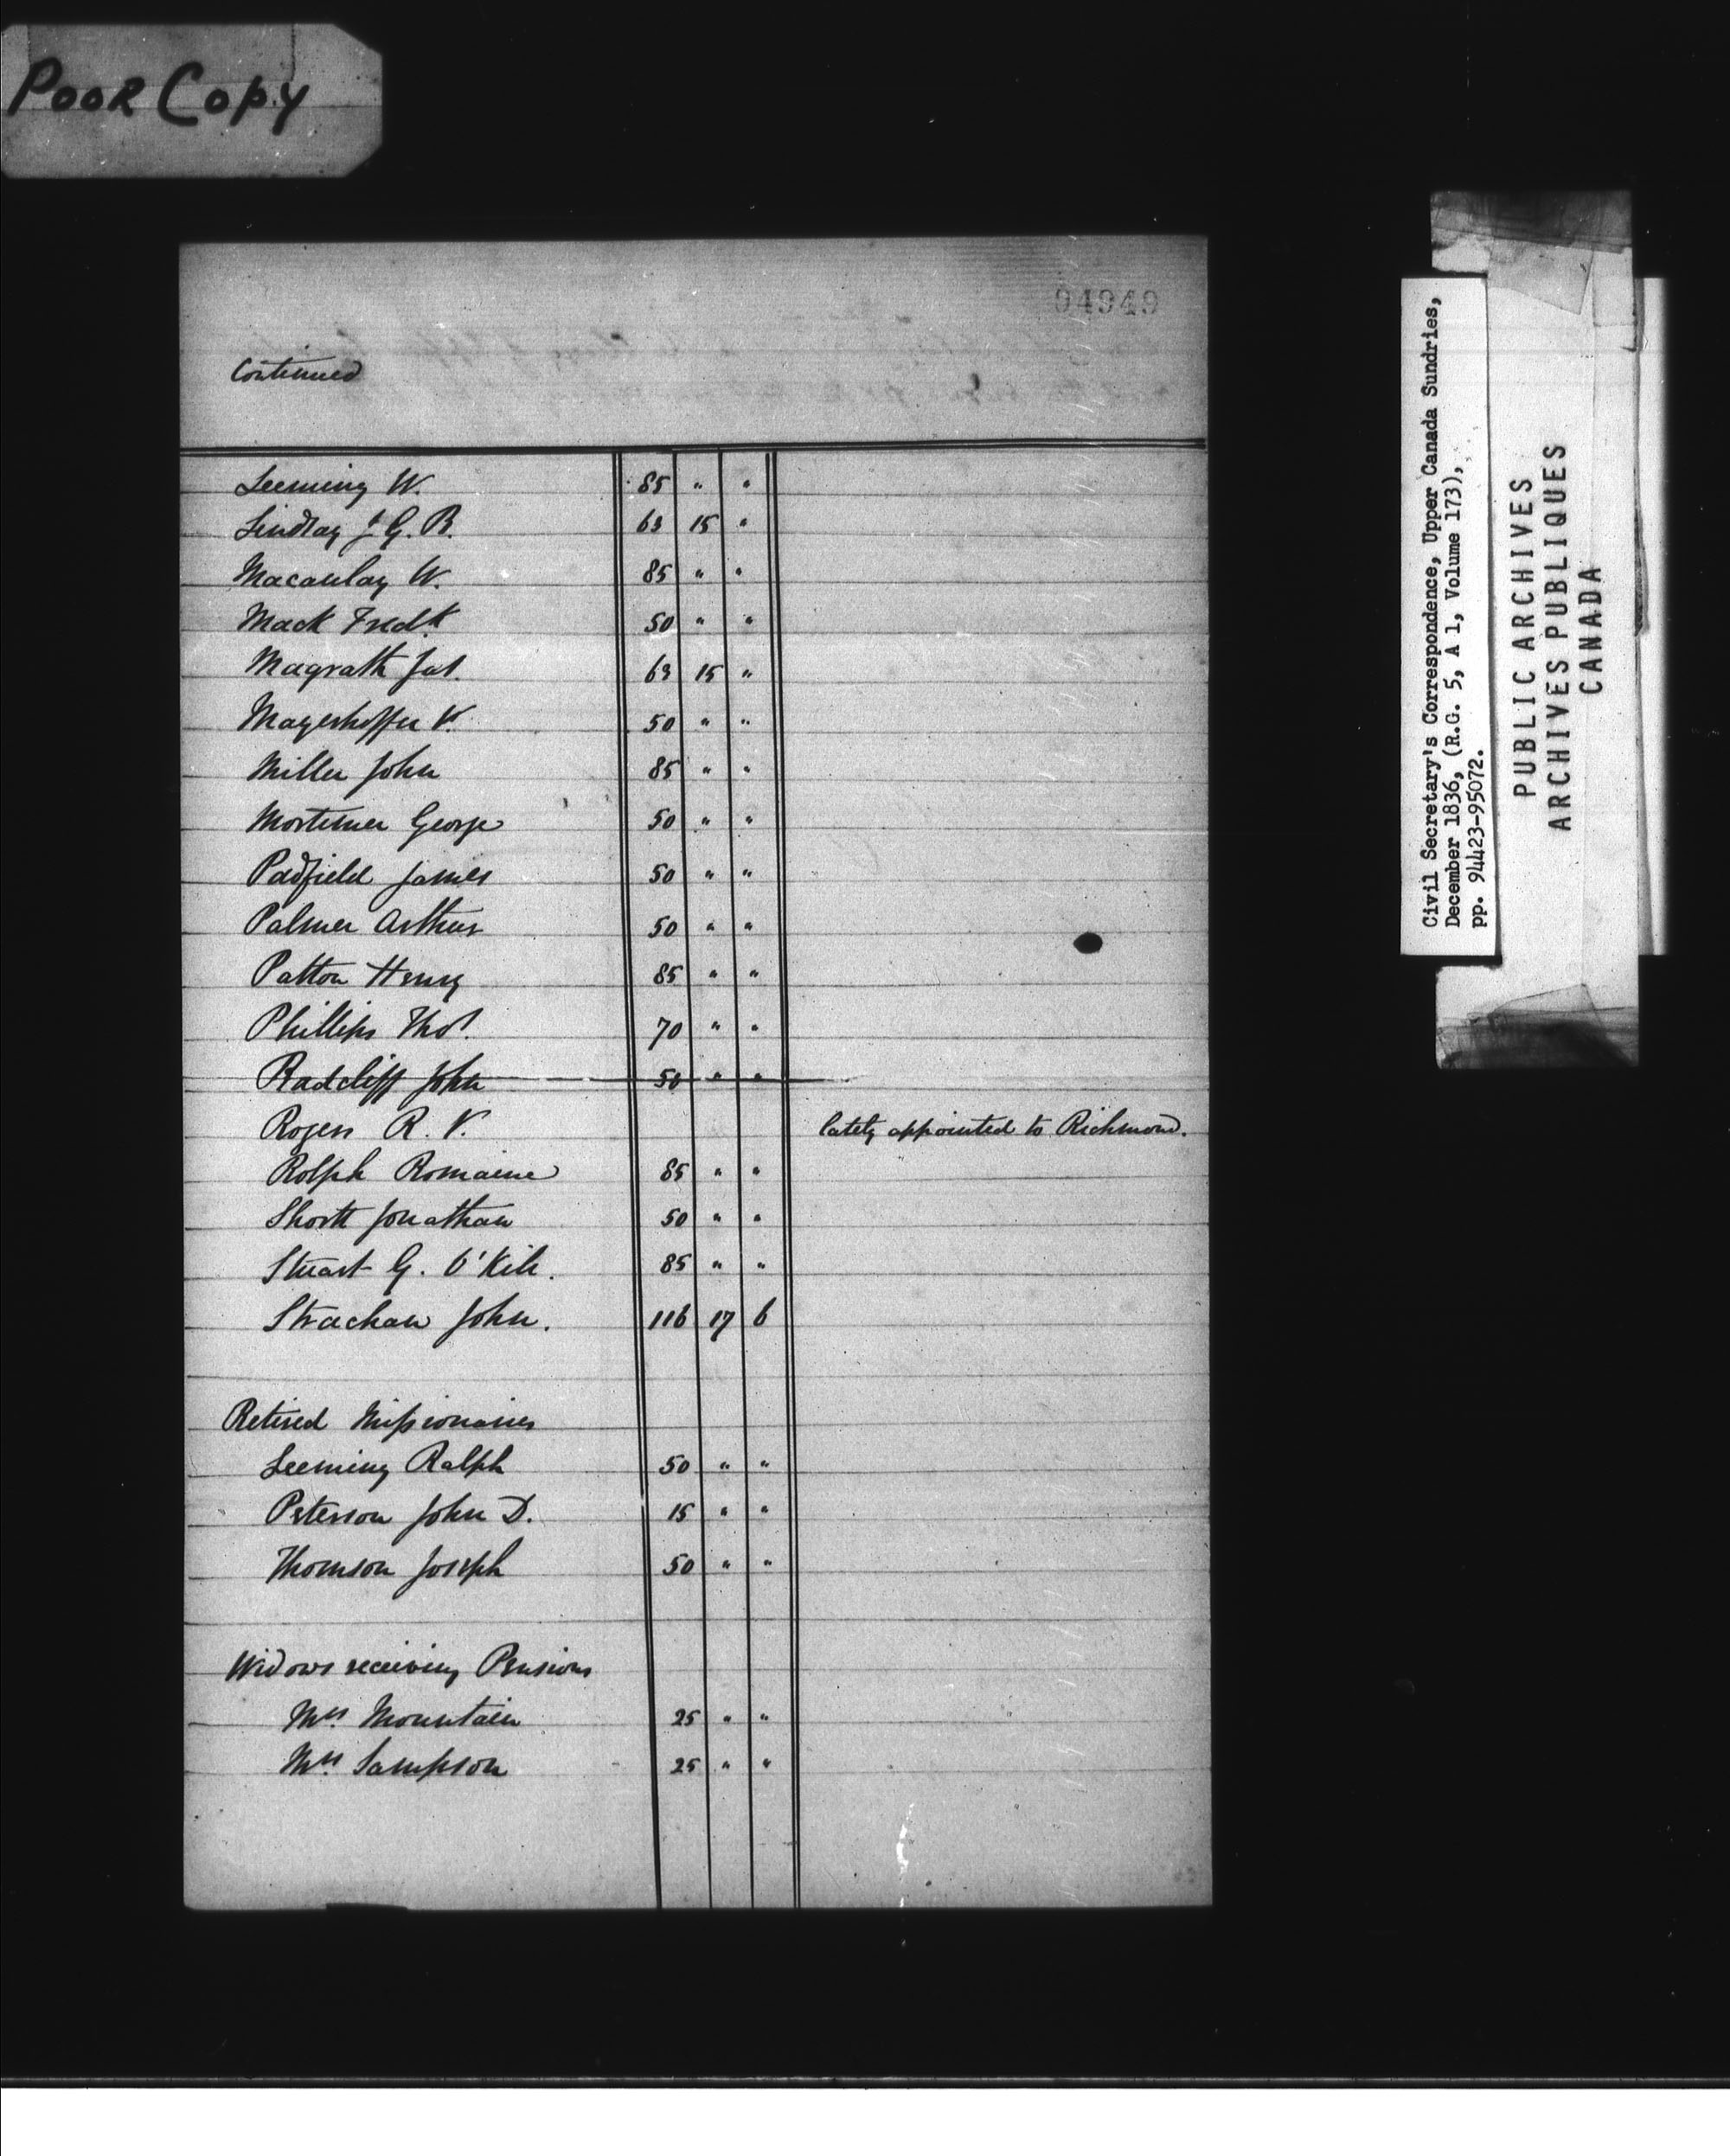 Poor Copy
94949
Continued
Leeming W. 85 " "
Lindsay J. G. B. 63 15 "
Macaulay W. 85 " "
Mack Fredk. 50 " "
Magrath Jas. 63 15 "
Mayerhoffer V. 50 " "
Miller John 85 " "
Mortimer George 50 " "
Padfield James 50 " "
Palmer Arthur 50 " "
Patton Henry 85 " "
Phillips Thos. 70 " "
Radcliff John 50 " "
Rogers R. V. lately appointed to Richmond.
Rolph Romaine 85 " "
Shortt Jonathan 50 " "
Stuart G. O'Kill. 85 " "
Strachan John. 116 17 6
Retired Missionaries
Leeming Ralph 50 " "
Peterson John D. 15 " "
Thomson Joseph 50 " "
Widows receiving Pensions
Mrs. Mountain 25 " "
Mrs. Sampson 25 " "
Civil Secretary's Correspondence, Upper Canada Sundries,
December 1836, (R.G. 5, A 1, Volume 173),
pp. 94423-95072.
PUBLIC ARCHIVES
ARCHIVES PUBLIQUES
CANADA